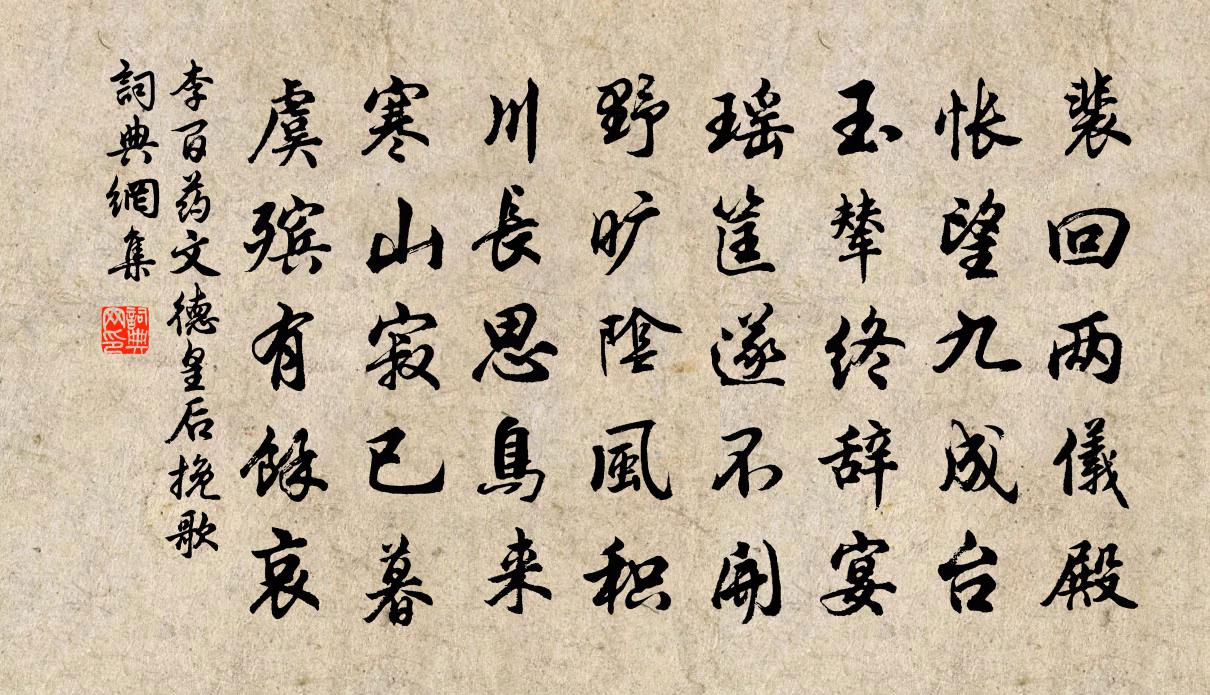 裴回两儀殿
怅望九成台
玉辇终辞宴
瑶筐遂不開
野旷陰風积
川長思鳥来
寒山寂已暮
虞殡有餘哀
李百药文德皇后挽歌
詞典網集
詞典
网印